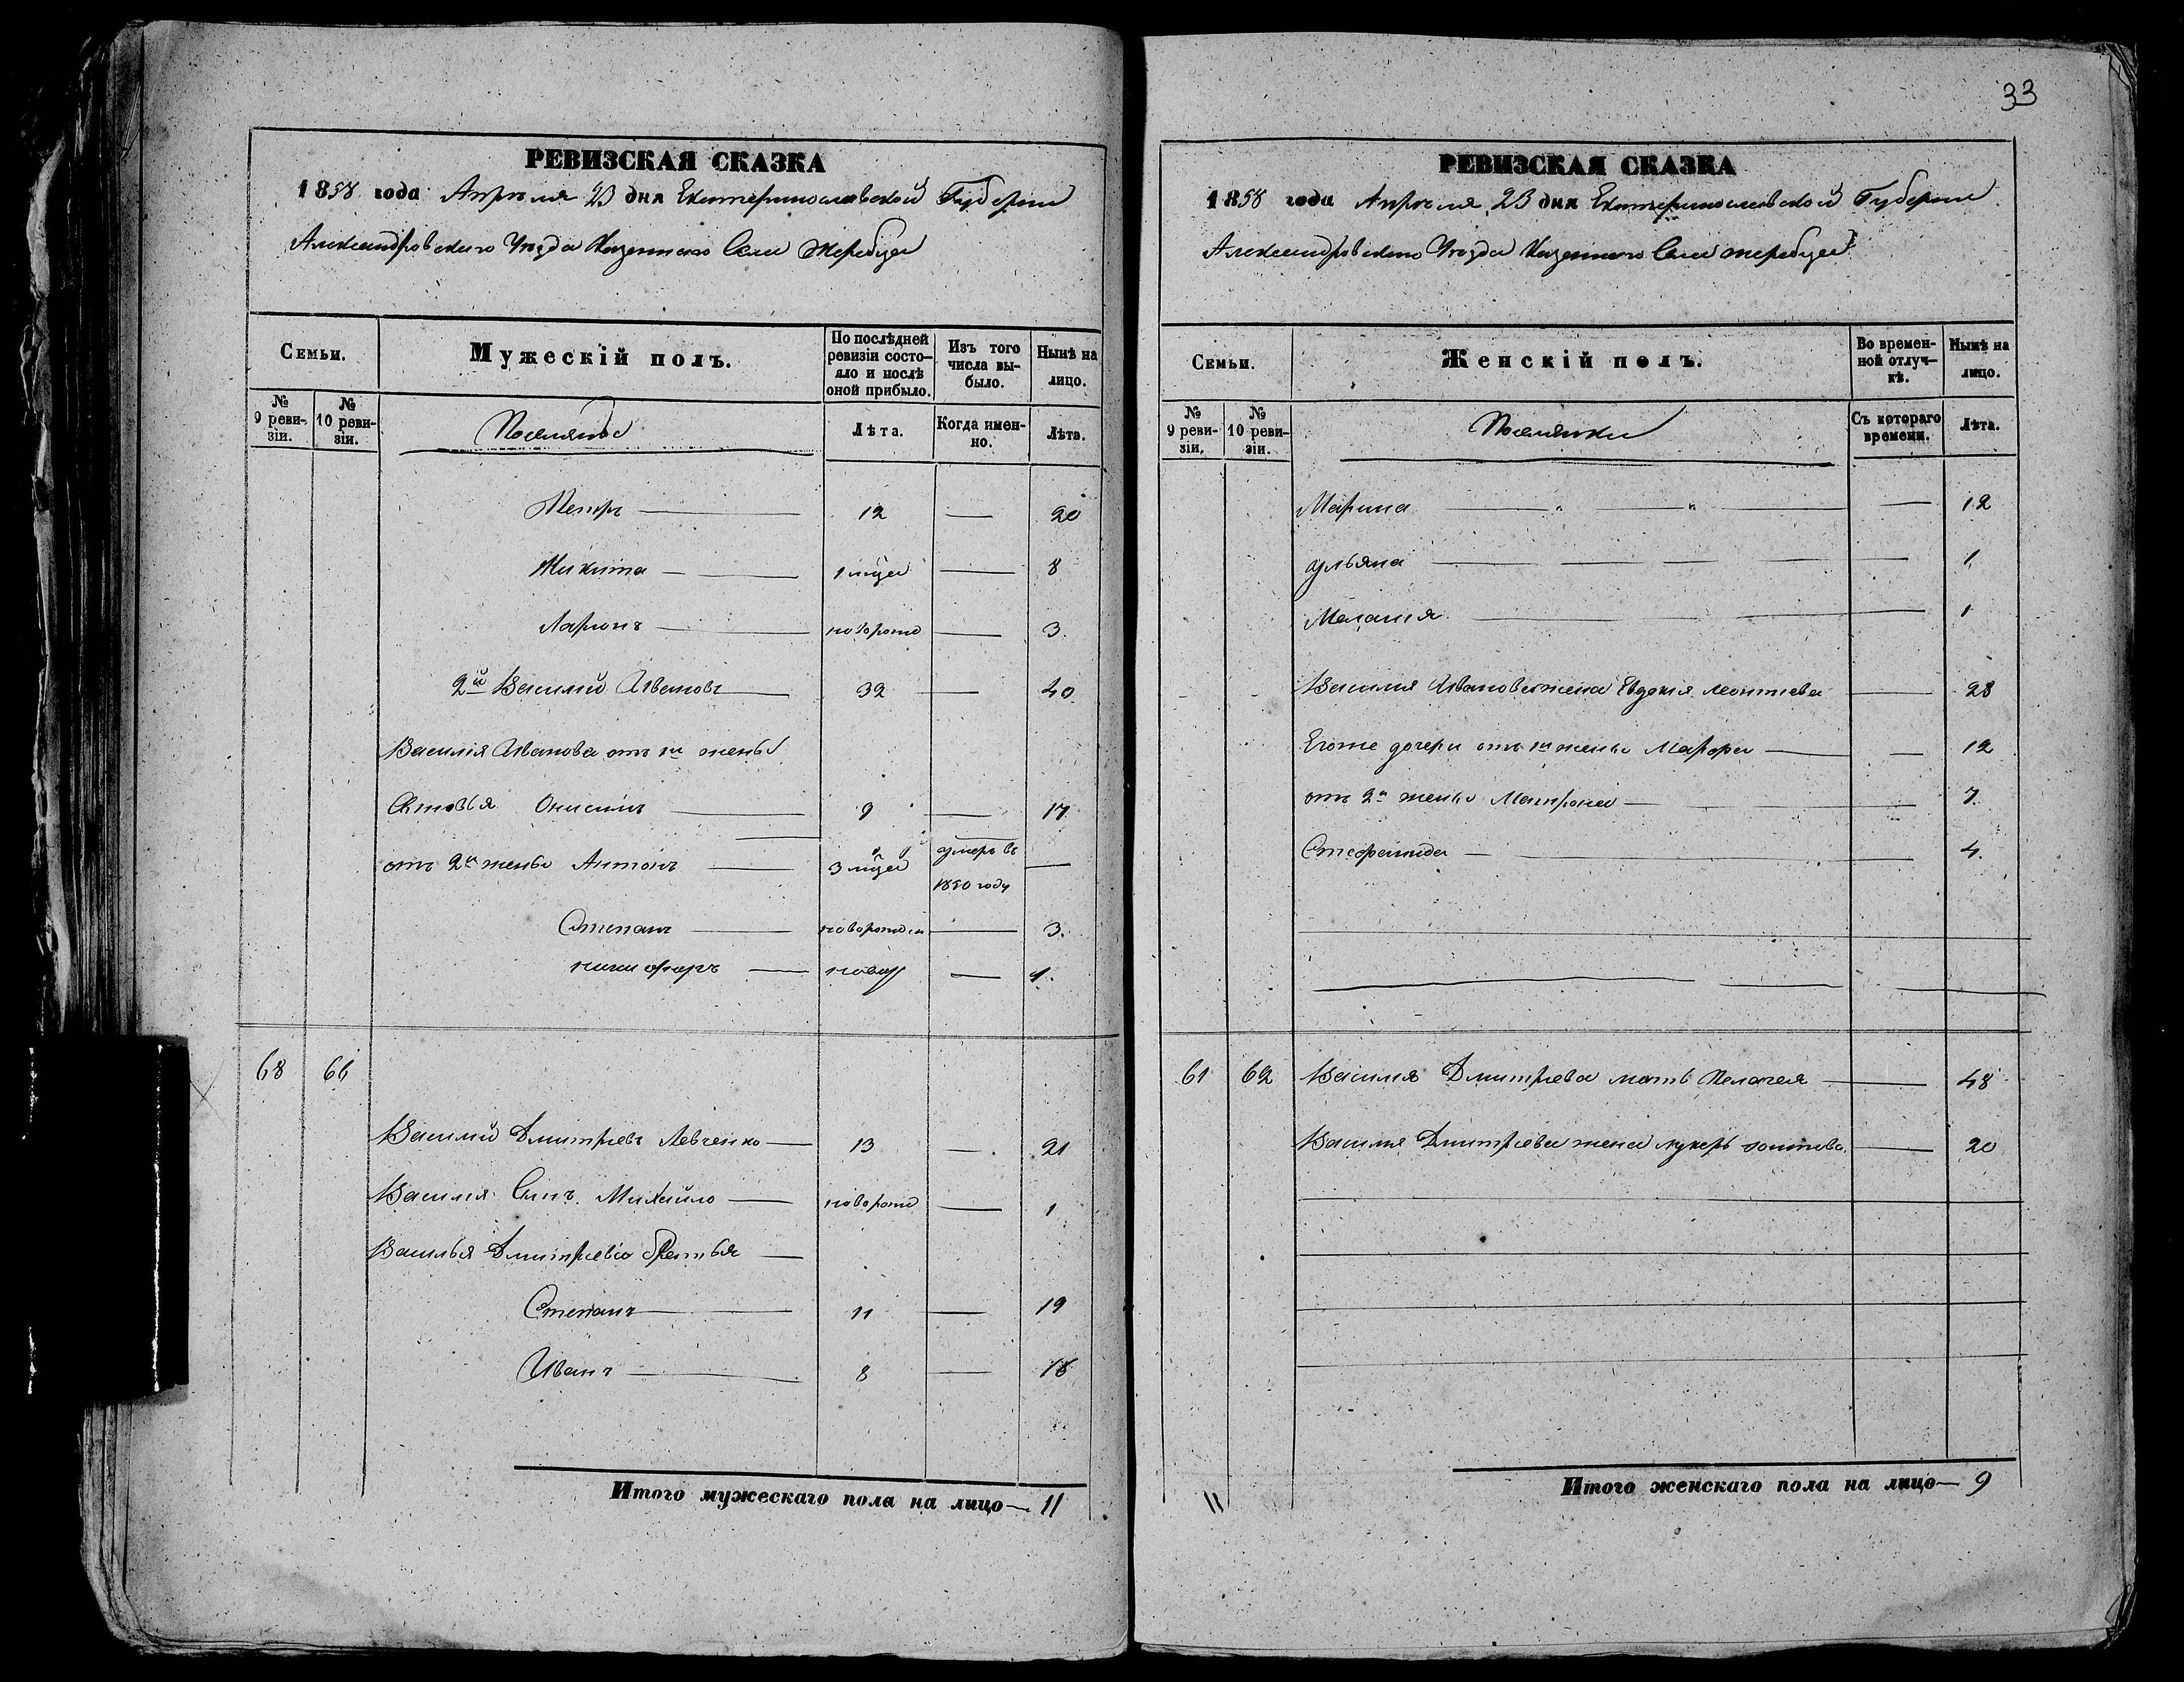 РЕВИЗСКАЯ СКАЗКА
1858 года Апреля 23 дня Екатеринославской Губернии
Александровского Уезда Казенного Села Жеребца
Семьи.
Мужескій полъ.
По послѣдней ревизіи состояло и послѣ оной прибыло.
Изъ того числа выбыло.
Нынѣ на лицо.
№ 9 ревизіи.
№ 10 ревизіи.
Поселяне
Лѣта.
Когда именно.
Лѣта.
Петръ 12 — 20
Никита 1 мца — 8
Ларионъ новорожд — 3.
2й Василий Ивановъ 32 — 40.
Василія Иванова отъ 1й жены
Сыновья Онисимъ 9 — 17
отъ 2й жены Антонъ 3 мца умеръ въ 1850 году —
Степанъ новорожден — 3.
никифоръ новор — 1.
68 66
Василий Дмитриевъ Левченко 13 — 21
Василия Сынъ Михайло новорожд — 1
Василья Дмитриева Братья
Степанъ 11 — 19
Иванъ 8 — 16
Итого мужескаго пола на лицо — 11
33
РЕВИЗСКАЯ СКАЗКА
1858 года Апреля 23 дня Екатеринославской Губернии
Александровского Уезда Казенного Села жеребца
Семьи.
Женскій полъ.
Во временной отлучкѣ.
Нынѣ на лицо.
№ 9 ревизіи.
№ 10 ревизіи.
Поселянки
Съ котораго времени.
Лѣта.
Марина — 12
ульяна — 1
Маланія — 1
Василия Иванова жена Евдокия Леонтиева — 28
Егоже дочери отъ 1й жены Марфа — 12
отъ 2й жены Матрона — 7.
Стефанида — 4.
61 62 Василия Дмитриева мать Пелагея — 48
Василия Дмитриева жена — 20
Итого женскаго пола на лицо — 9